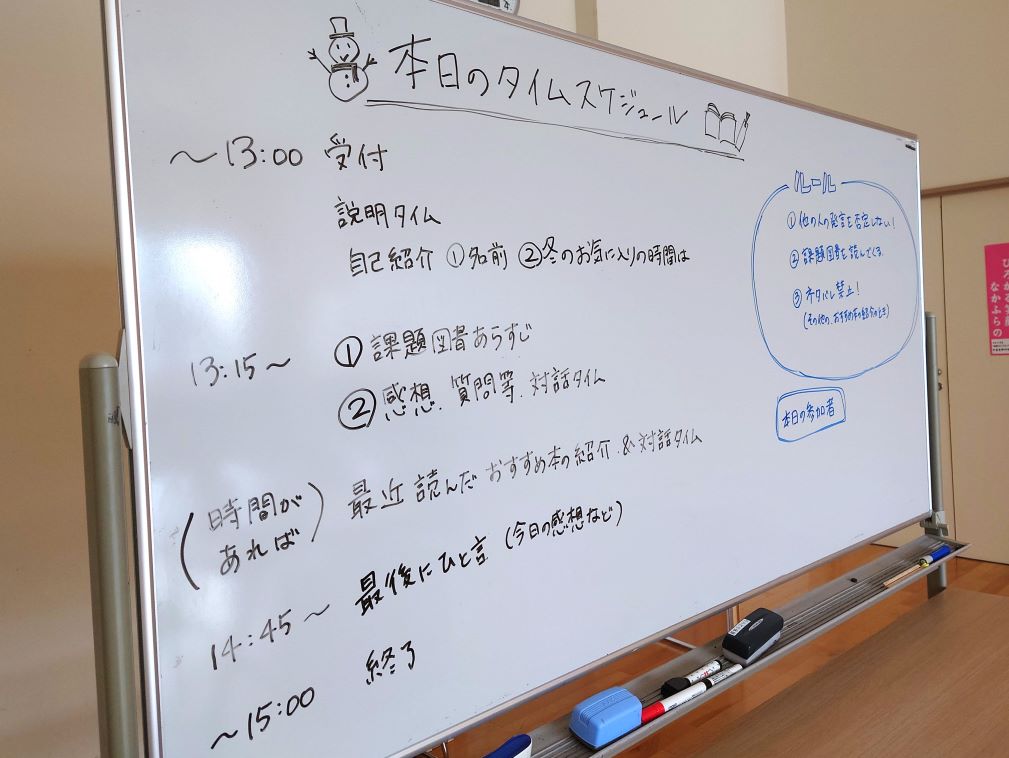 本日のタイムスケジュール
～13:00 受付
説明タイム
自己紹介 ①名前 ②冬のお気に入りの時間は
13:15～ ①課題図書あらすじ
②感想、質問等、対話タイム
(時間があれば) 最近読んだおすすめ本の紹介&対話タイム
14:45～ 最後にひと言(今日の感想など)
～15:00 終了
ルール
①他の人の発言を否定しない!
②課題図書を読んでくる
③ネタバレ禁止!
(その他の、おすすめ本の紹介のとき)
本日の参加者
なかふらの